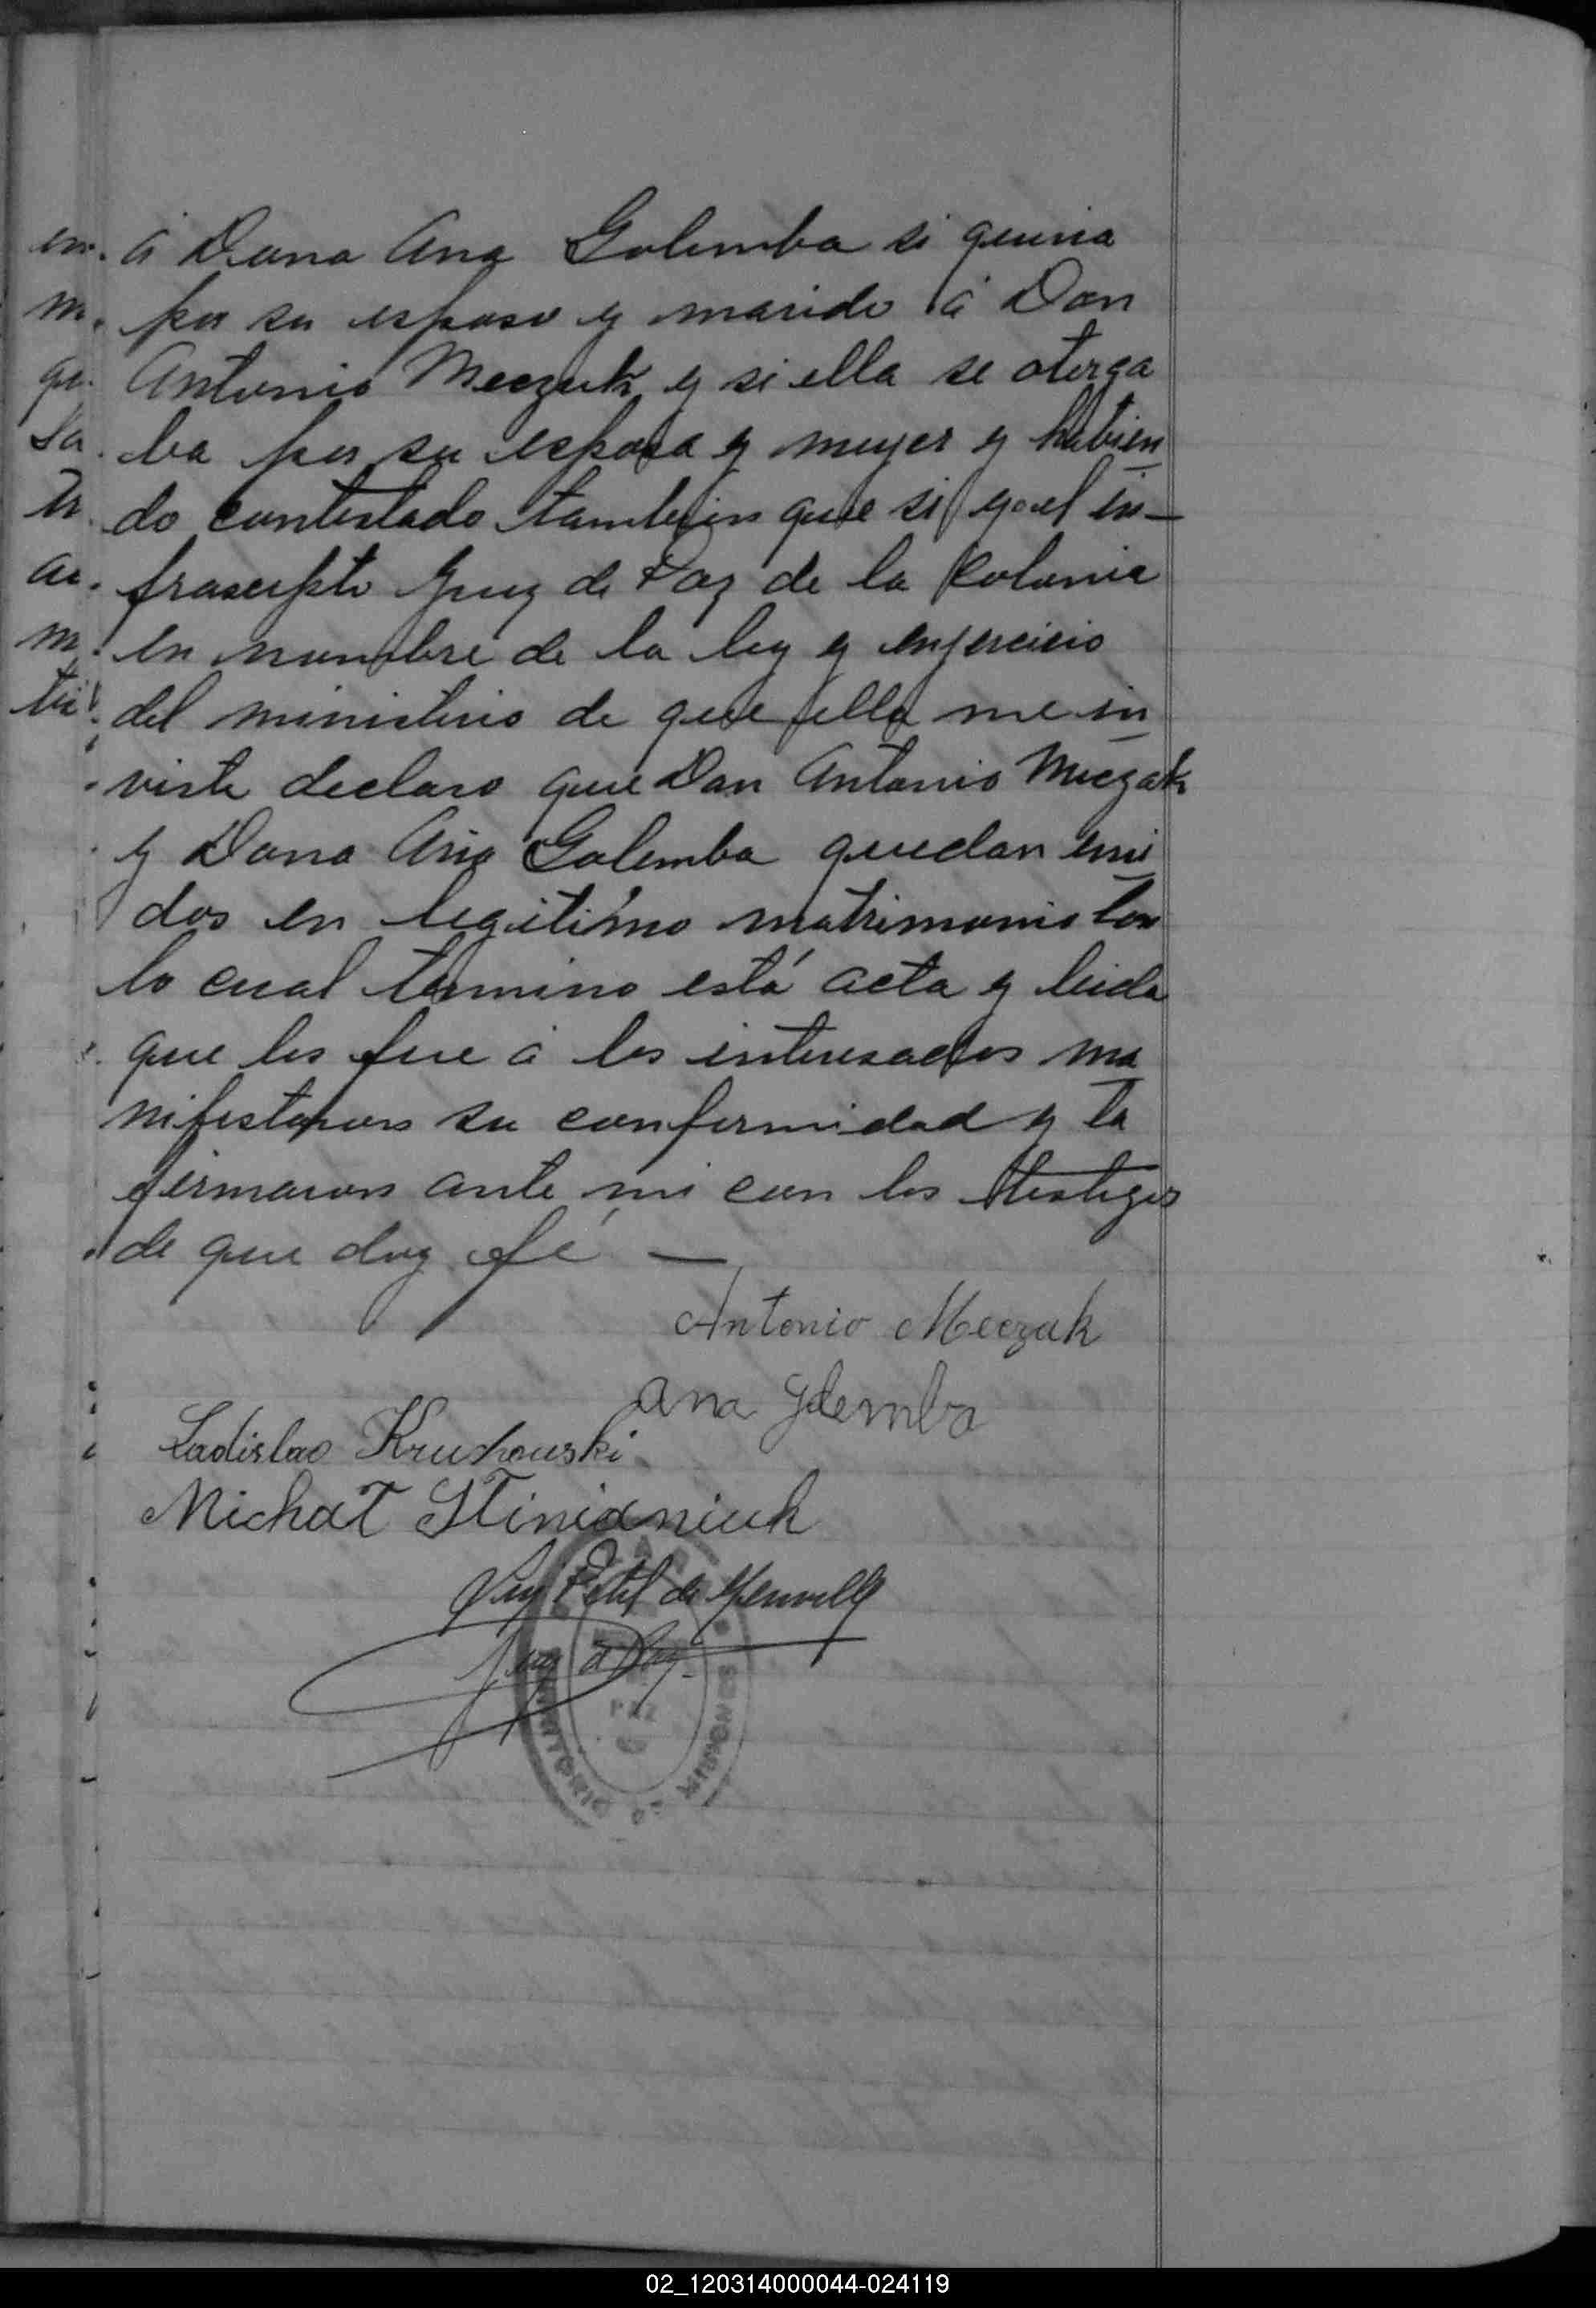 á Dona Ana Golemba si queria
por su esposo y marido á Don
Antonio Meczuk y si ella se otorga
ba por su esposa y mujer y habien
do contestado tambien que si yo el in-
frascripto Juez de Paz de la Colonia
en nombre de la ley y enjercicio
del ministerio de que ella me in
viste declaro que Don Antonio Meczak
y Dona Ana Golemba quedan uni
dos en legitimo matrimonio con
lo cual termino está acta y leida
que les fue á los interesados ma
nifestaron su conformidad y la
firmaron ante mi con los testigos
de que doy fé —
Antonio Meczak
Ana Golemba
Ladislao Kruchouski
Michat
Petit de
Juez d Paz
PAZ
TERRITORIO DE MISIONES
02_120314000044-024119